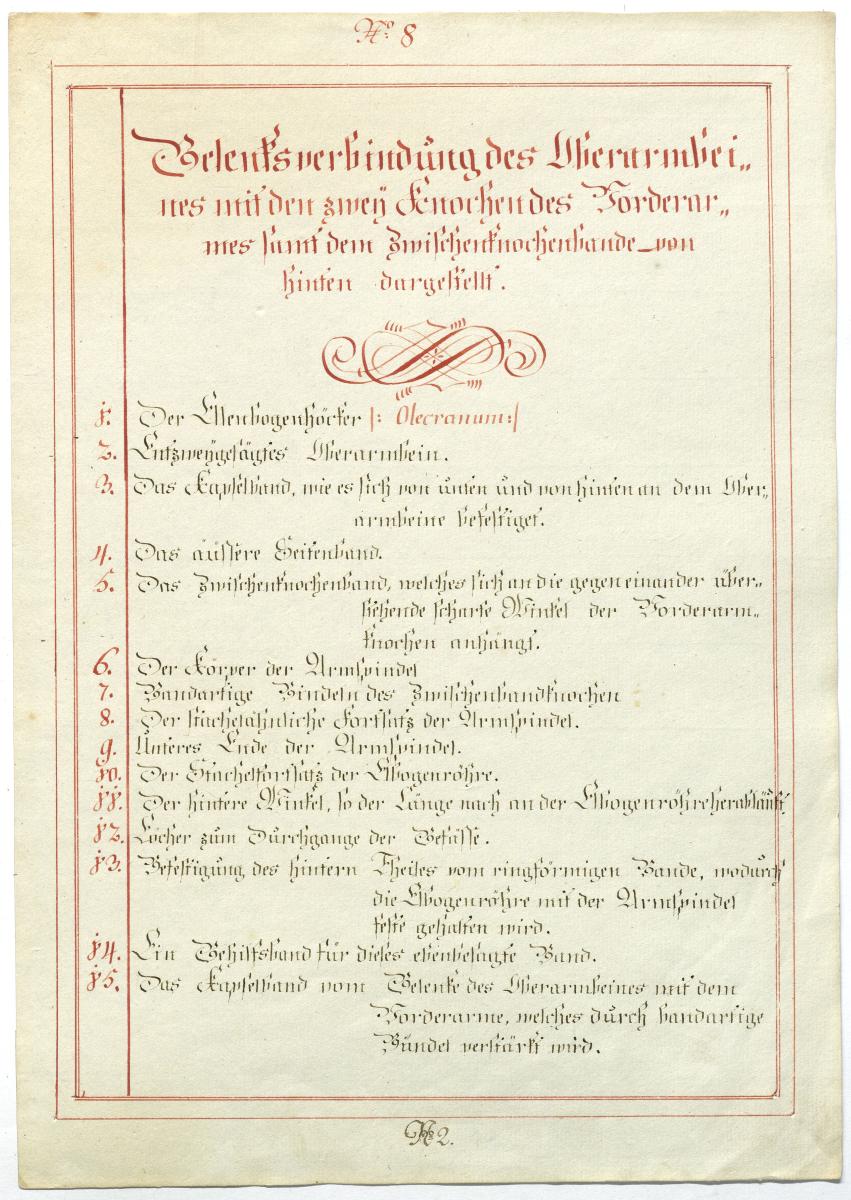 No: 8
Gelenksverbindung des Oberarmbei„
nes mit den zwey Knochen des Vorderar„
mes samt dem Zwischenknochenbande von
hinten dargestellt.
1. Der Ellenbogenhöcker |: Olecranum:|
2. Entzweygesägtes Oberarmbein.
3. Das Kapselband, wie es sich von unten und von hinten an dem Ober„
armbeine befestiget.
4. Das äussere Seitenband.
5. Das Zwischenknochenband, welches sich an die gegen einander über„
stehende scharfe Winkel der Vorderarm„
knochen anhängt.
6. Der Körper der Armspindel
7. Bandartige Bindeln des Zwischenbandknochen
8. Der stachelähnliche Fortsatz der Armspindel.
9. Unteres Ende der Armspindel.
10. Der Stachelfortsatz der Elbogenröhre.
11. Der hintere Winkel, so der Länge nach an der Elbogenröhre herabläuft.
12. Löcher zum Durchgange der Gefässe.
13. Befestigung des hintern Theiles vom ringförmigen Bande, wodurch
die Elbogenröhre mit der Armspindel
feste gehalten wird.
14. Ein Gehilfsband für dieses ebenbesagte Band.
15. Das Kapselband vom Gelenke des Oberarmbeines mit dem
Vorderarme, welches durch bandartige
Bündel verstärkt wird.
N 2.